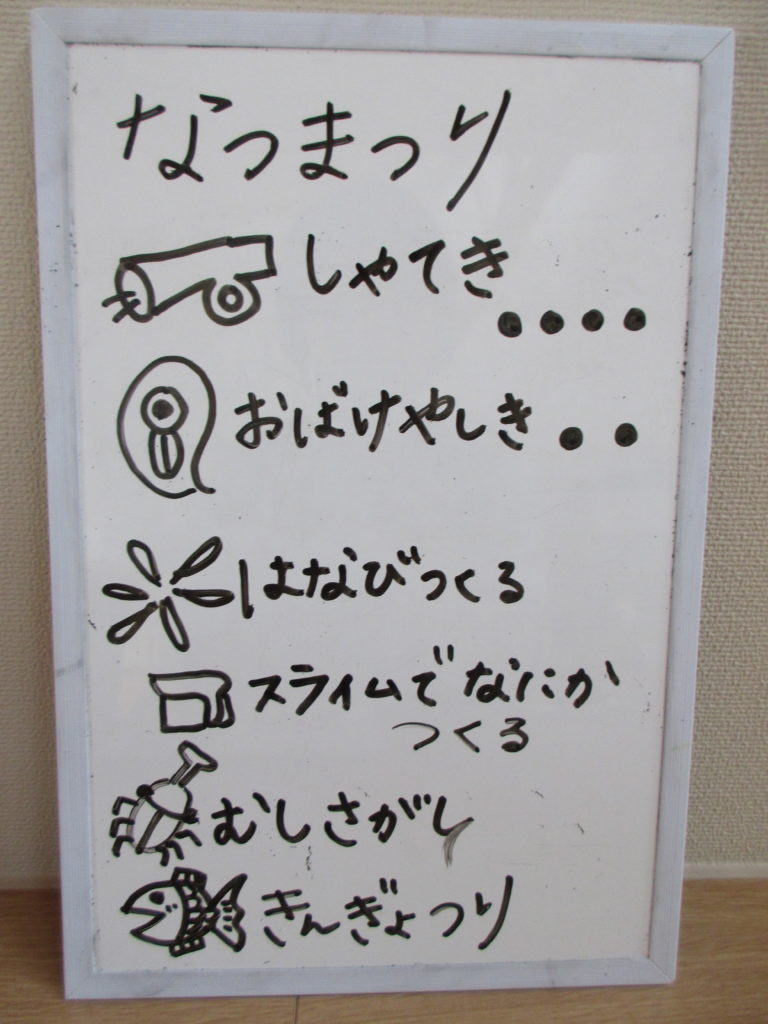 なつまつり
しゃてき
おばけやしき
はなびつくる
スライムでなにか
つくる
むしさがし
きんぎょつり